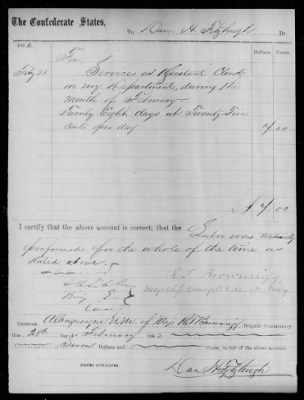 The Confederate States,
To Dan H. Fitzhugh Dr.
Dollars. Cents.
186
Feby 28 For
Services as Resident Clerk
in my Department, during the
month of February
Twenty Eight days at Twenty Five
Cents per day 7/00
$ 7/00
I certify that the above account is correct; that the Labor was actually
performed for the whole of the time as
stated above.
Received Albuquerque N.M. of Maj
this 28th day of February 1862
Seven Dollars and Cents, in full of the above account.
Dan H Fitzhugh